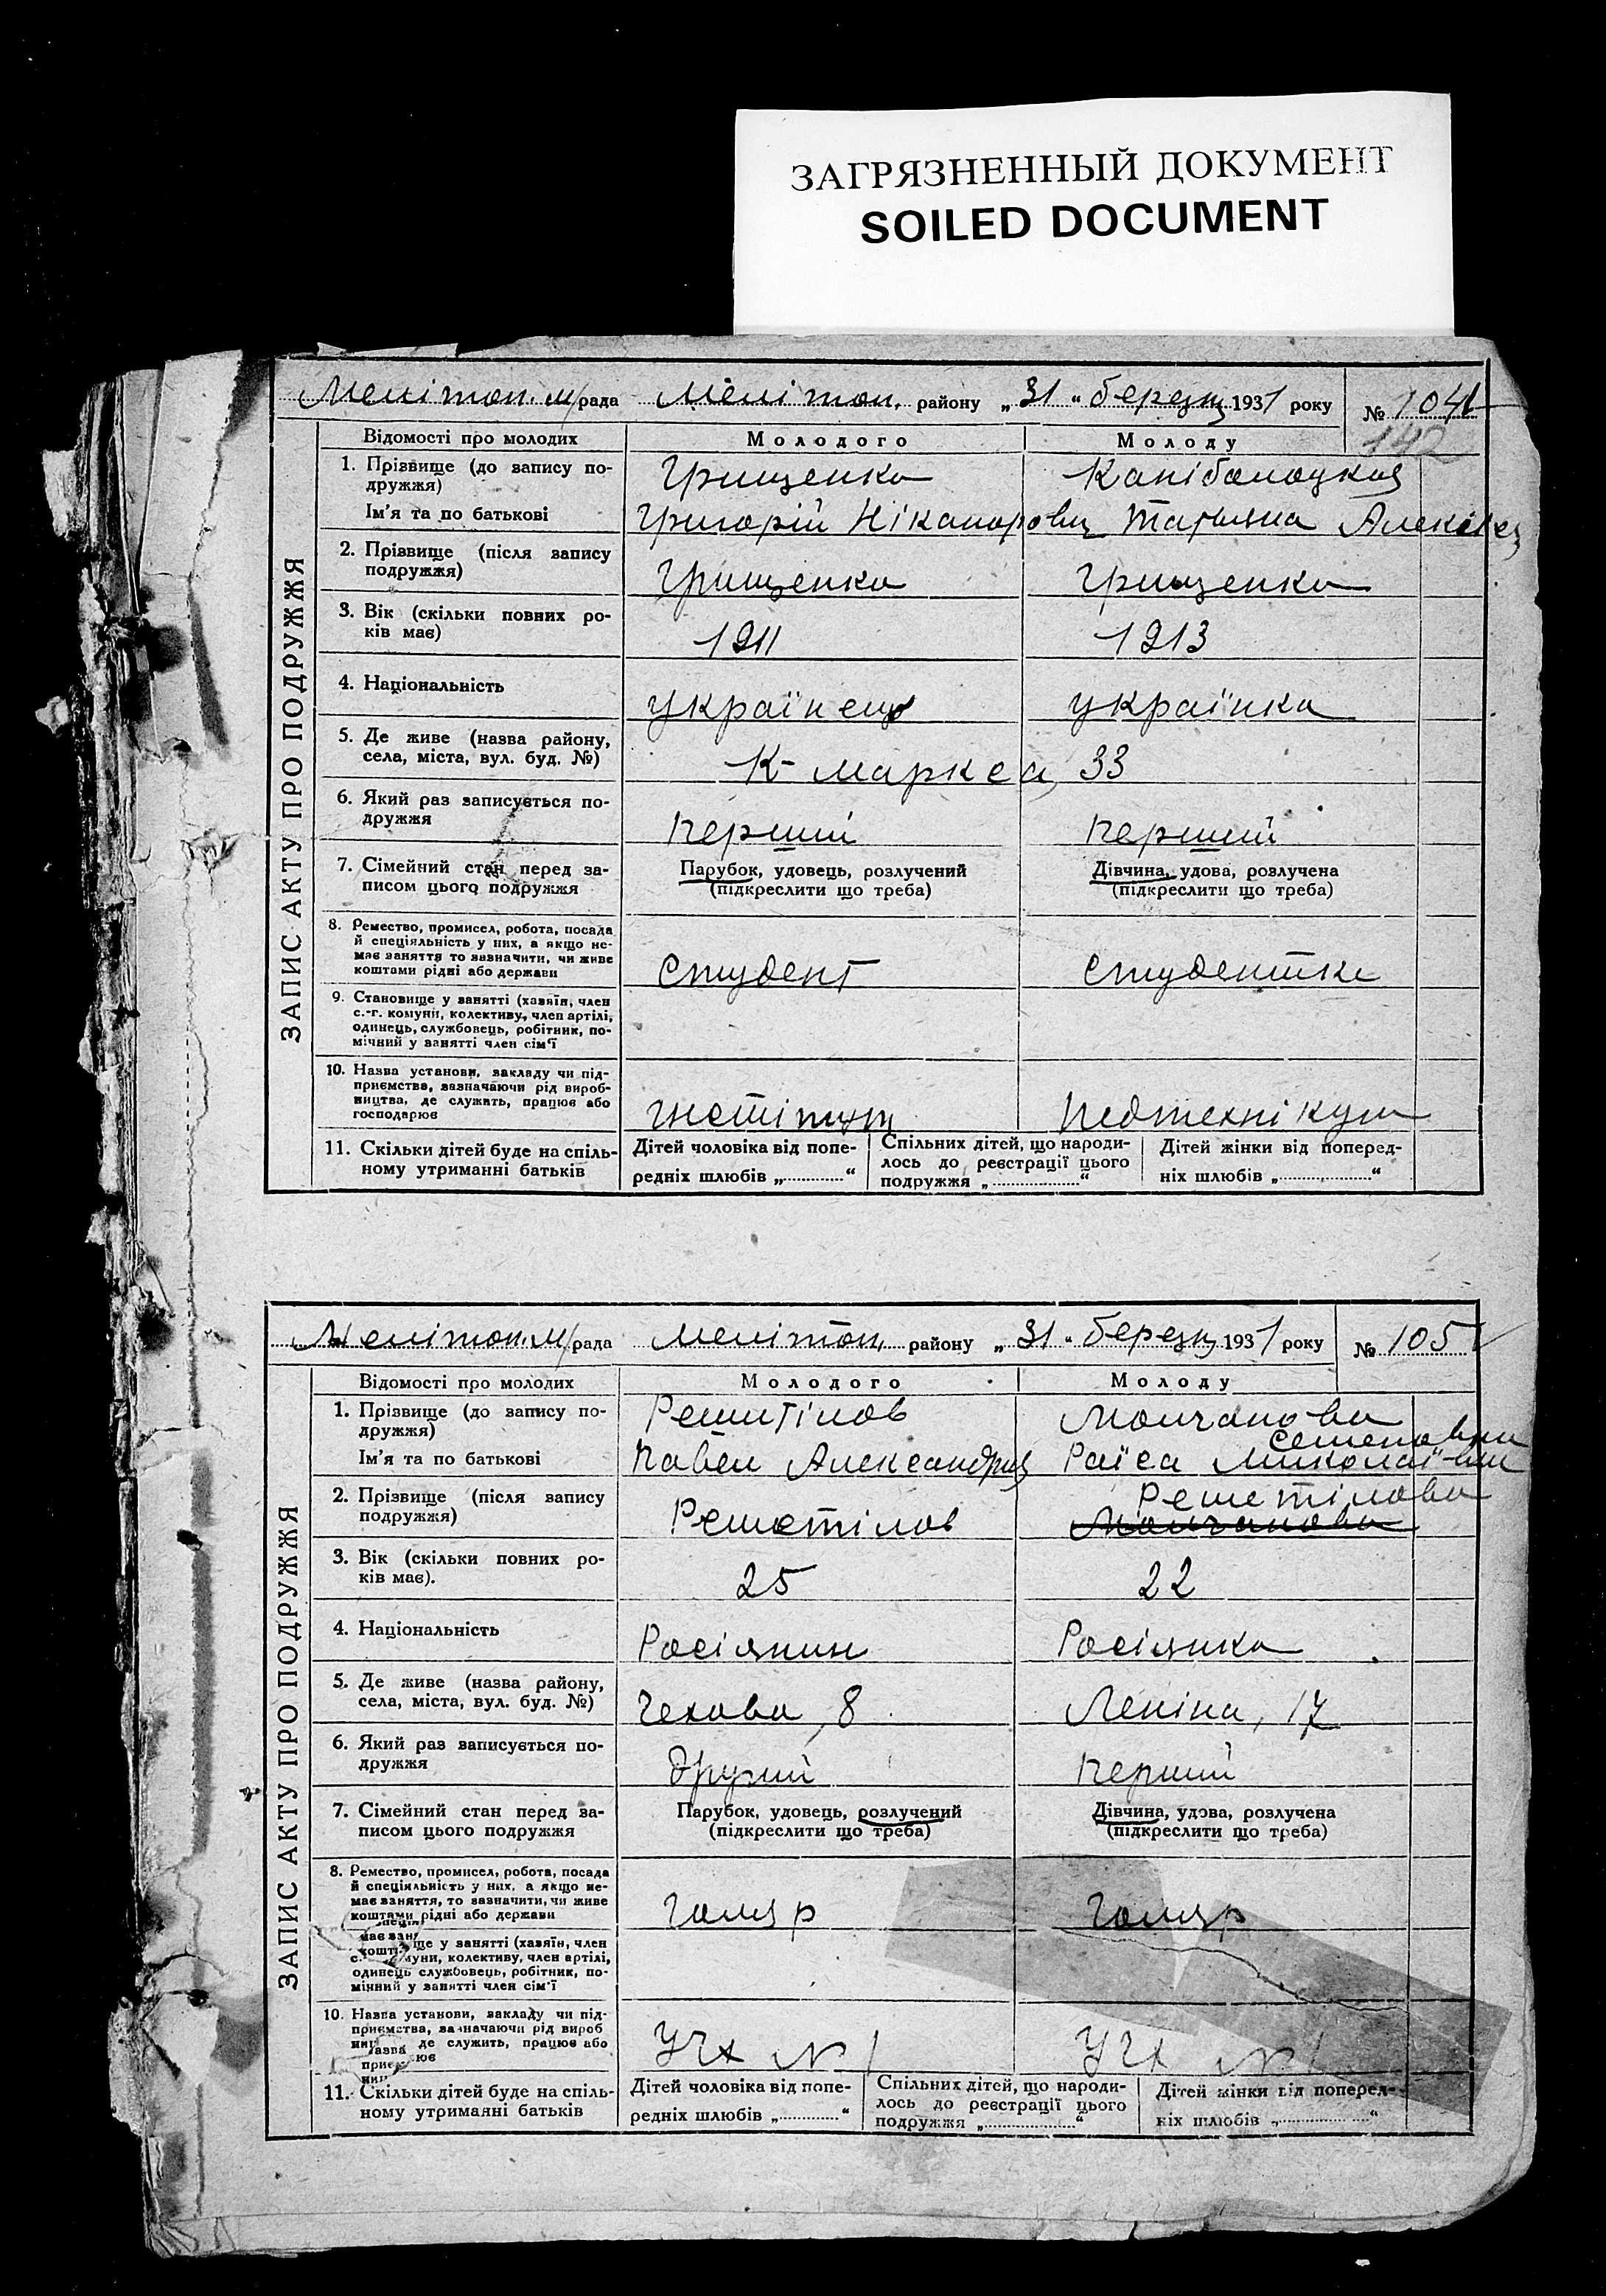 ЗАГРЯЗНЕННЫЙ ДОКУМЕНТ
SOILED DOCUMENT
Меліточ. м/рада Меліточ. району „31" березня 1931 року № 104
142
ЗАПИС АКТУ ПРО ПОДРУЖЖЯ
Відомості про молодих Молодого Молоду
1. Прізвище (до запису по-
дружжя)
Грищенко
Ім'я та по батькові
Григорій Ніканорович Татьяна
2. Прізвище (після запису
подружжя)
Грищенко Грищенко
3. Вік (скільки повних ро-
ків має)
1911 1913
4. Національність
українець українка
5. Де живе (назва району,
села, міста, вул. буд. №)
К-Маркса, 33
6. Який раз записується по-
дружжя
перший перший
7. Сімейний стан перед за-
писом цього подружжя
Парубок, удовець, розлучений
(підкреслити що треба)
Дівчина, удова, розлучена
(підкреслити що треба)
8. Ремество, промисел, робота, посада
й спеціяльність у них, а якщо не-
має заняття то зазначити, чи живе
коштами рідні або держави
студент студентка
9. Становище у занятті (хазяїн, член
с.-г. комуни, колективу, член артілі,
одинець, службовець, робітник, по-
мічний у занятті член сім'ї
10. Назва установи, закладу чи під-
приємства, зазначаючи рід вироб-
ництва, де служить, працює або
господарює
Інстітут Педтехнікум
11. Скільки дітей буде на спіль-
ному утриманні батьків
Дітей чоловіка від попе-
редніх шлюбів „............"
Спільних дітей, що народи-
лось до реєстрації цього
подружжя „................"
Дітей жінки від поперед-
ніх шлюбів „................"
Меліточ. м/рада Меліточ. району „31" березня 1931 року № 105
ЗАПИС АКТУ ПРО ПОДРУЖЖЯ
Відомості про молодих Молодого Молоду
1. Прізвище (до запису по-
дружжя)
Решитілов Молчанова
Ім'я та по батькові
Семеновни
Павел Александрич Раїса Миколаївни
2. Прізвище (після запису
подружжя)
Решетілова
Решетілов Молчанова
3. Вік (скільки повних ро-
ків має).
25 22
4. Національність
Росіянин Росіянка
5. Де живе (назва району,
села, міста, вул. буд. №)
Чехова, 8 Леніна, 17
6. Який раз записується по-
дружжя
другий перший
7. Сімейний стан перед за-
писом цього подружжя
Парубок, удовець, розлучений
(підкреслити що треба)
Дівчина, удова, розлучена
(підкреслити що треба)
8. Ремество, промисел, робота, посада
й спеціяльність у них, а якщо не-
має заняття, то зазначити, чи живе
коштами рідні або держави
ще у занятті (хазяїн, член
муни, колективу, член артілі,
одинець службовець, робітник, по-
мічний у занятті член сім'ї
10. Назва установи, закладу чи під-
приємства, зазначаючи рід вироб
де служить, працює або
№ 1 № 1
11. Скільки дітей буде на спіль-
ному утриманні батьків
Дітей чоловіка від попе-
редніх шлюбів „............"
Спільних дітей, що народи-
лось до реєстрації цього
подружжя „................"
Дітей жінки від поперед-
ніх шлюбів „................"